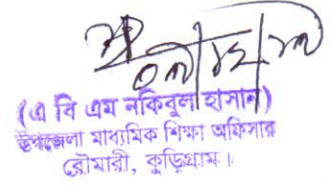 (এ বি এম নকিবুল হাসান)
উপজেলা মাধ্যমিক শিক্ষা অফিসার
রৌমারী, কুড়িগ্রাম।